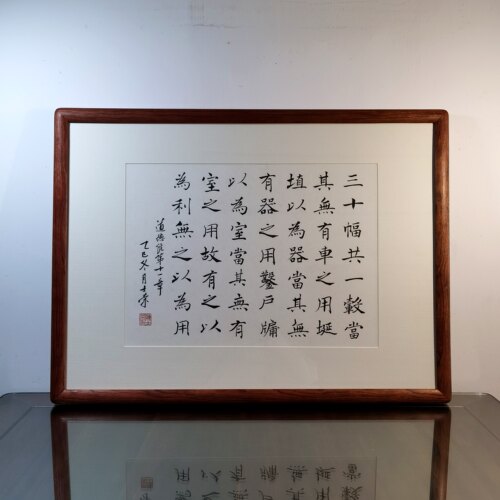 三十幅共一轂當
其無有車之用埏
埴以為器當其無
有器之用鑿戶牖
以為室當其無有
室之用故有之以
為利無之以為用
道德經第十一章
乙巳冬月